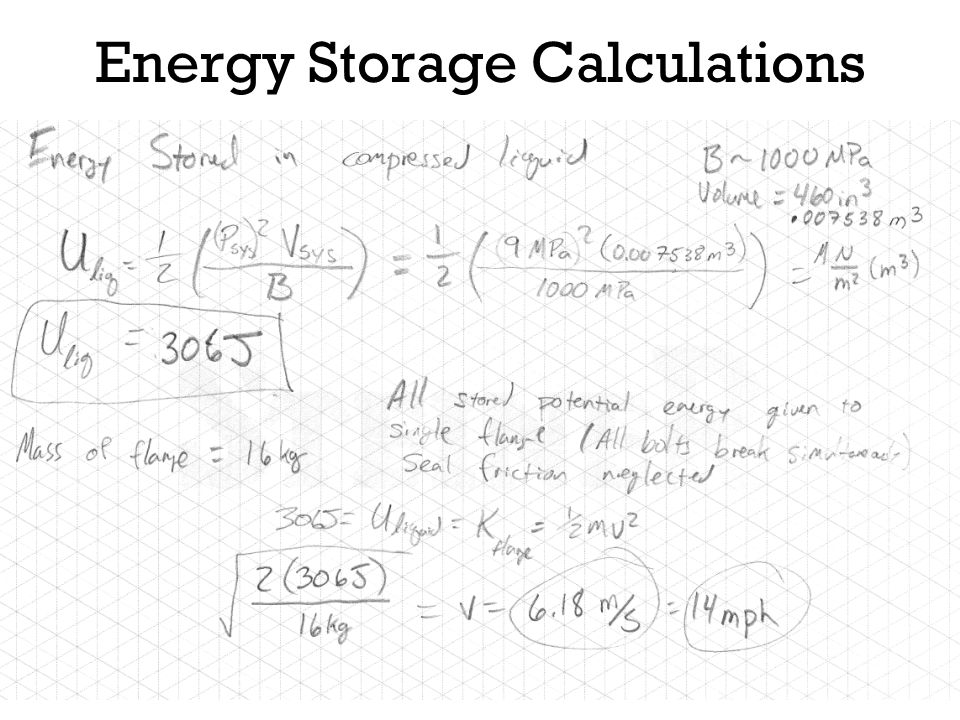 Energy Storage Calculations
Energy Stored in compressed liquid
B ~ 1000 MPa
Volume = 460 in³
.007538 m³
U_liq = 1/2 ((P_sys)² V_sys / B) = 1/2 ((9 MPa)² (0.007538 m³) / 1000 MPa) = M N/m² (m³)
U_liq = 306J
All stored potential energy given to
single flange (All bolts break
Seal friction neglected
Mass of flange = 16 kg
306J = U_liquid = K_flange = 1/2 mv²
√(2(306J) / 16kg) = v = 6.18 m/s = 14 mph